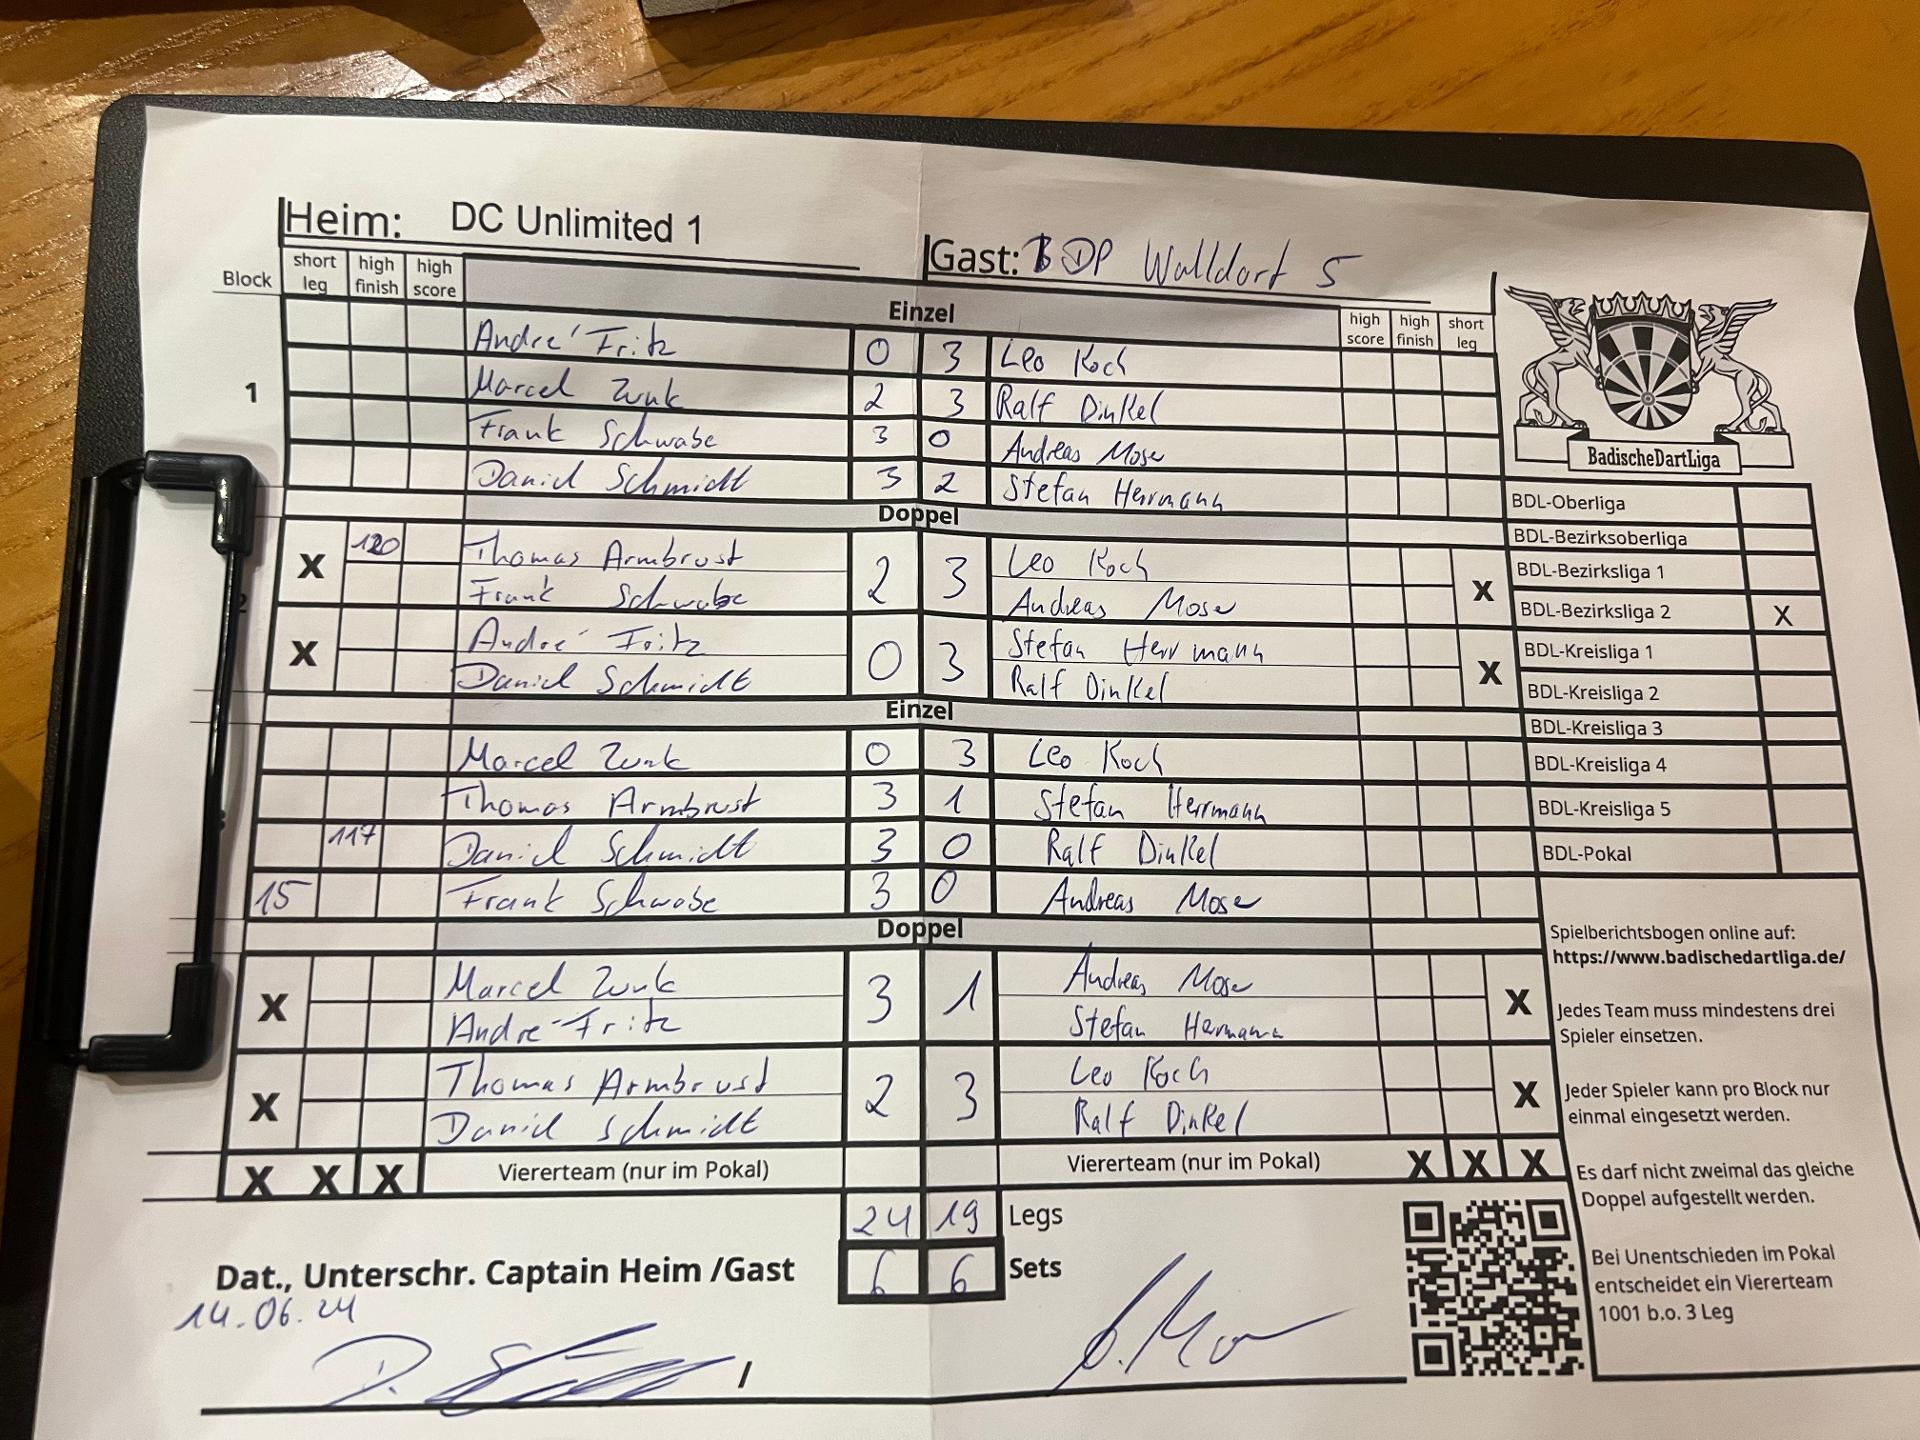 Heim: DC Unlimited 1
Gast: BDP Walldorf 5
Block short leg high finish high score
Einzel
high score high finish short leg
1
André Fritz 0 3 Leo Koch
Marcel Zunk 2 3 Ralf Dinkel
Frank Schwabe 3 0 Andreas Moser
Daniel Schmidt 3 2 Stefan Herrmann
Doppel
X 120 Thomas Armbrust 2 3 Leo Koch X
Frank Schwabe Andreas Moser
2
X André Fritz 0 3 Stefan Herrmann X
Daniel Schmidt Ralf Dinkel
Einzel
Marcel Zunk 0 3 Leo Koch
Thomas Armbrust 3 1 Stefan Herrmann
117 Daniel Schmidt 3 0 Ralf Dinkel
15 Frank Schwabe 3 0 Andreas Moser
Doppel
X Marcel Zunk 3 1 Andreas Moser X
André Fritz Stefan Hermann
X Thomas Armbrust 2 3 Leo Koch X
Daniel Schmidt Ralf Dinkel
X X X Viererteam (nur im Pokal) Viererteam (nur im Pokal) X X X
24 19 Legs
6 6 Sets
Dat., Unterschr. Captain Heim /Gast
14.06.24
/
BadischeDartLiga
BDL-Oberliga
BDL-Bezirksoberliga
BDL-Bezirksliga 1
BDL-Bezirksliga 2 X
BDL-Kreisliga 1
BDL-Kreisliga 2
BDL-Kreisliga 3
BDL-Kreisliga 4
BDL-Kreisliga 5
BDL-Pokal
Spielberichtsbogen online auf:
https://www.badischedartliga.de/
Jedes Team muss mindestens drei
Spieler einsetzen.
Jeder Spieler kann pro Block nur
einmal eingesetzt werden.
Es darf nicht zweimal das gleiche
Doppel aufgestellt werden.
Bei Unentschieden im Pokal
entscheidet ein Viererteam
1001 b.o. 3 Leg